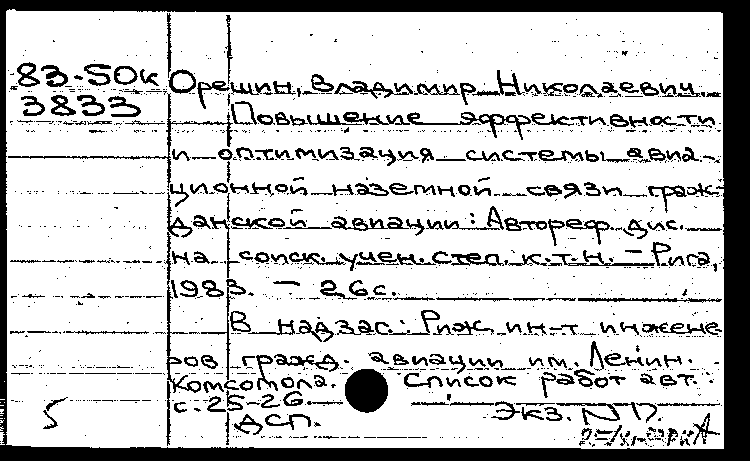 83-50к Орешин, Владимир Николаевич.
3833 Повышение эффективности
и оптимизация системы авиа-
ционной наземной связи граж-
данской авиации: Автореф. дис.
на соиск. учен. степ. к.т.н. - Рига,
1983. - 26с.
В надзаг.: Риж. ин-т инжене
ров гражд. авиации им. Ленин.
Комсомола. Список работ авт.:
с. 25-26.
5 ДСП. Экз.